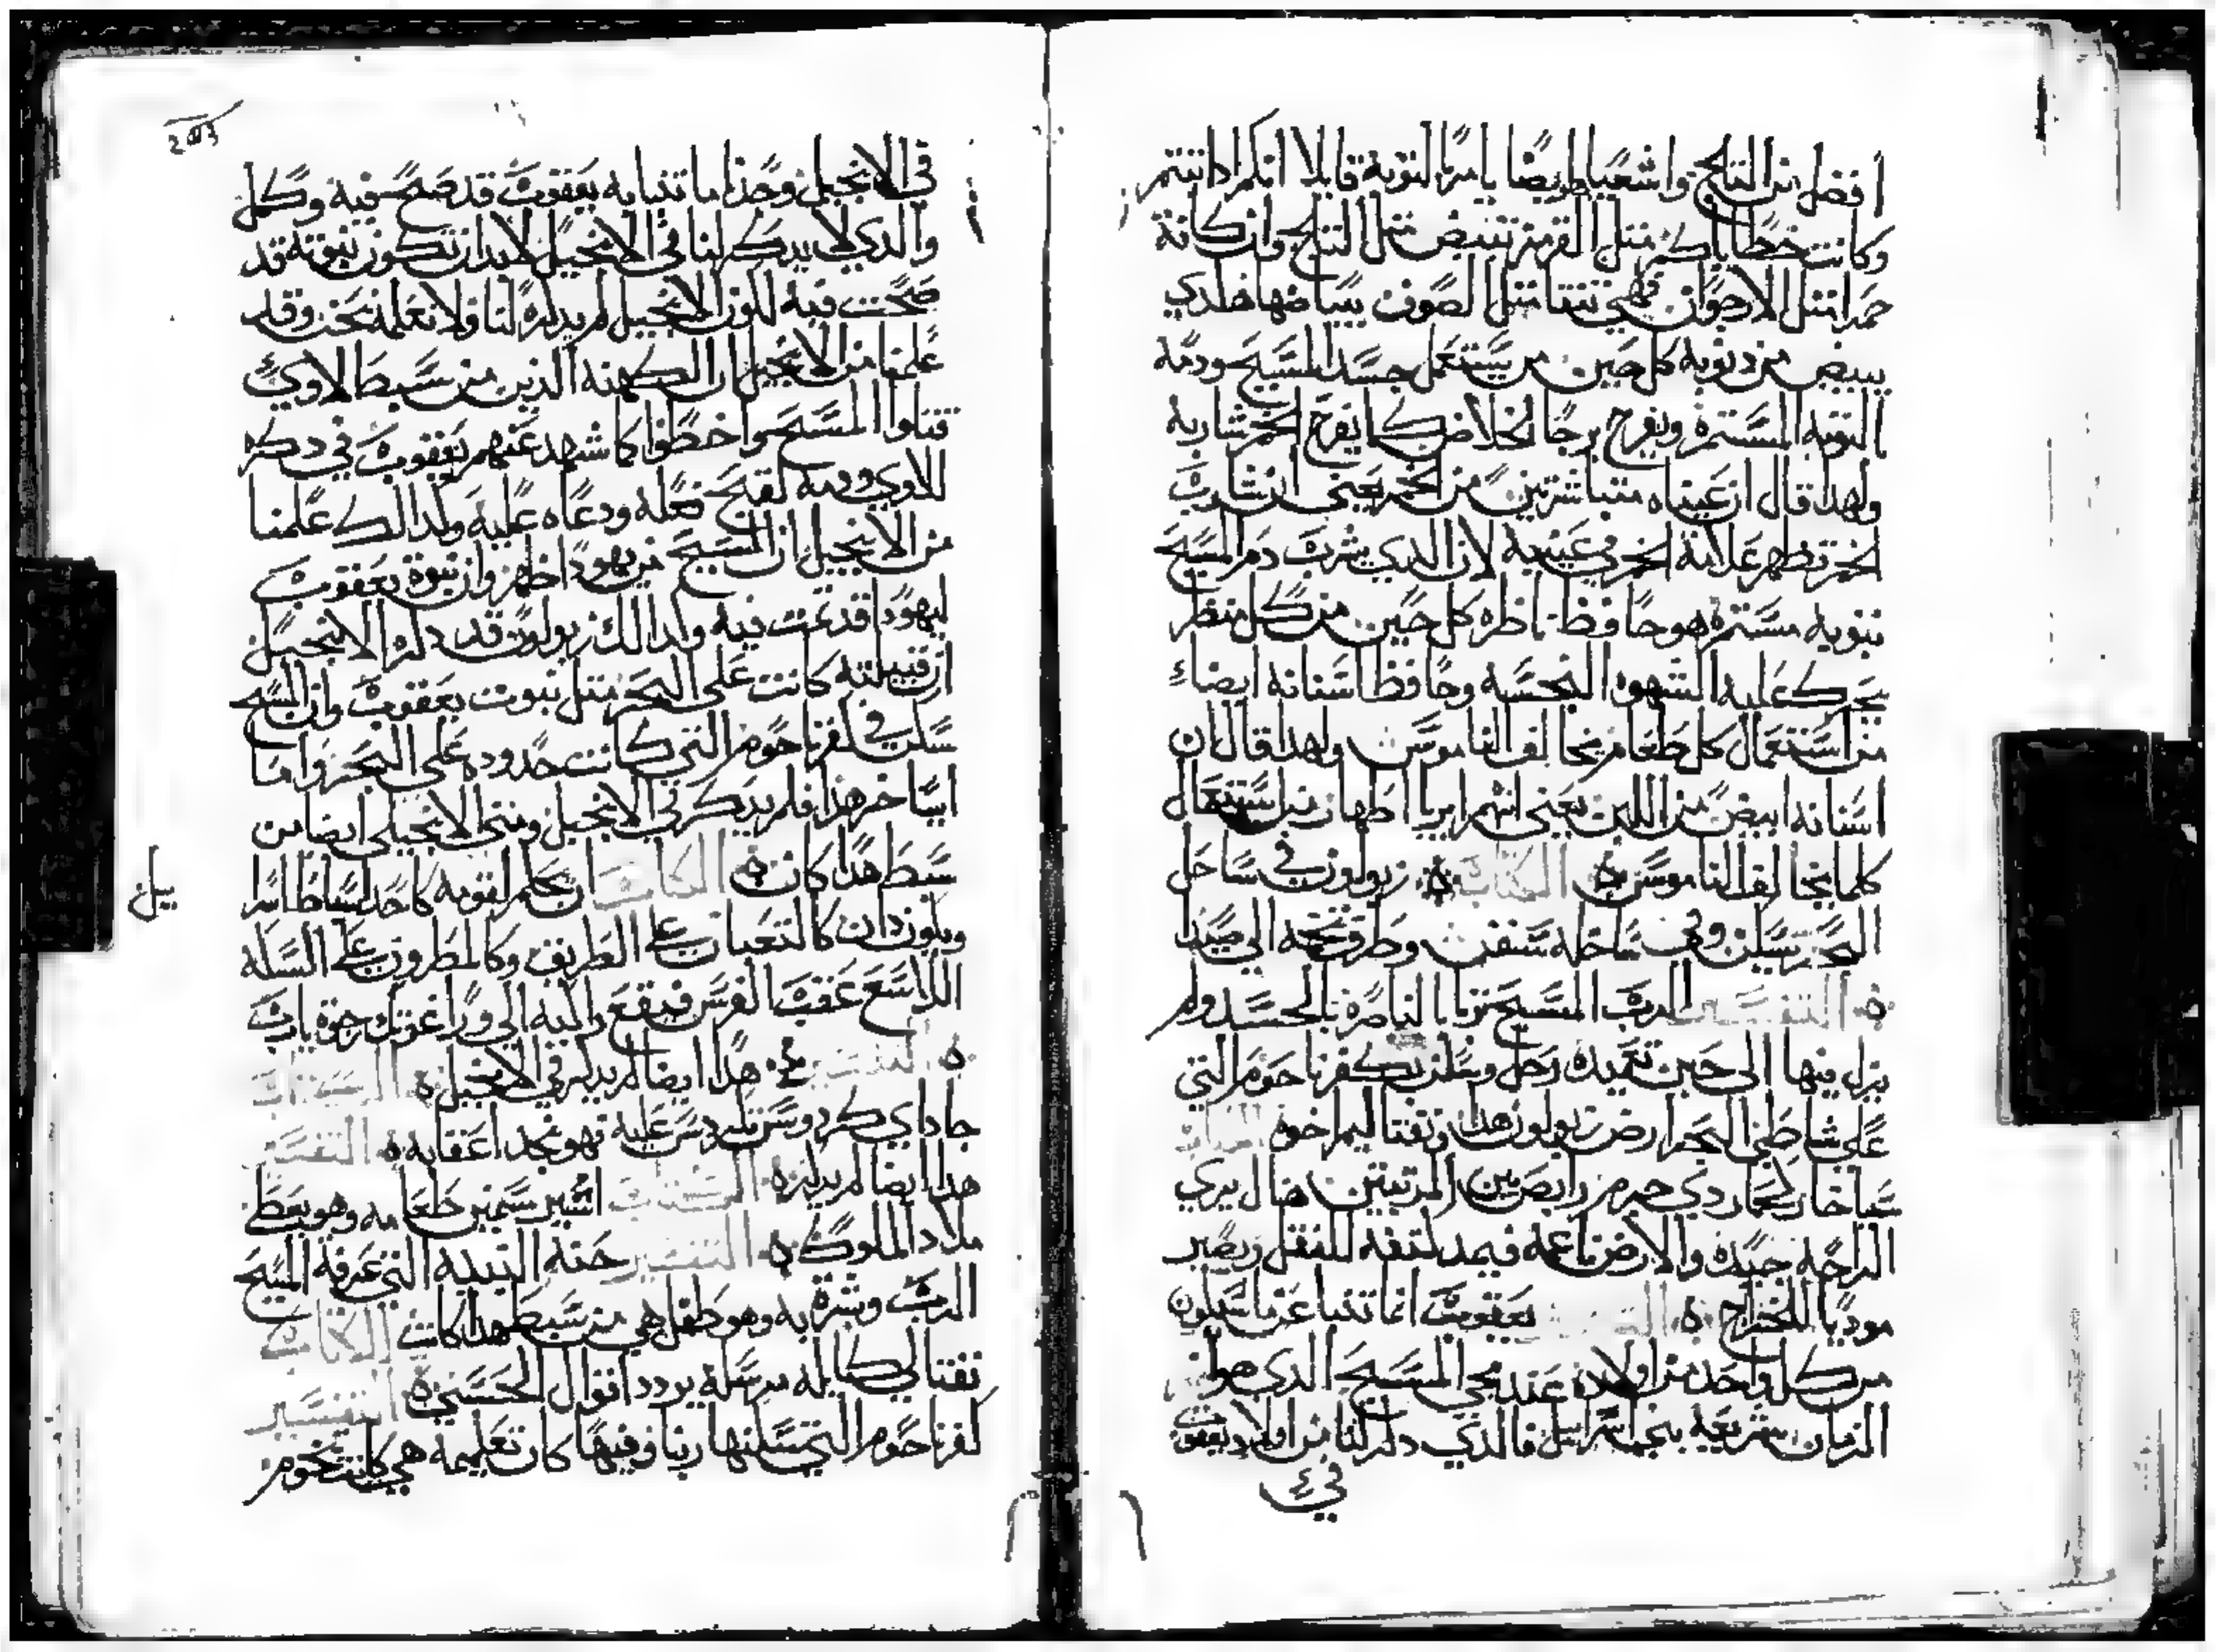 افضل من الثلج واشعيا ايضا يامر بالتوبة قايلا انكم ادا تبتم
وكانت خطاياكم مثل القرمز تبيض مثل الثلج وان كانة
حمرا مثل الارجوان فهي تنقا مثل الصوف ببياضها فلدي
يبيض من دنوبه كل حين من يستعمل جسد المسيح ودمه
التوبه المستمرة ويفرح برجا الخلاص كما يفرح الخمر شاربه
ولهدا قال ان عيناه متباشرتين من الخمر يعني ان شارب
الخمر تظهر علامة الخمر في عينيه لان الدي يشرب دم المسيح
بتوبه مستمرة هو حافظ ناظره كل حين من كل منظر
يحرك عليه الشهوه النجسه وحافظ اسنانه ايضا
من استعمال كل طعام يخالف الناموس ولهدا قال ان
اسنانه ابيض من اللبن يعني انهم ابريا اطهار من استعمال
كلما يخالف الناموس الكتاب زبولون في ساحل
البحر يسكن وفي ساحله سفن وطرف تخمه الي صيدا
التفسير الرب المسيح تربا بالناصرة بالجسد ولم
يزل فيها الي حين تعميده رحل وسكن بكفرناحوم التي
علي شاطي البحر ارض زبولون هدا ونفتاليم اخوه الكتاب
يساخار الحمار دي جرم رابص بين المرتبتين ضال يري
الراحة جيدة والارض ناعمة فيمد كتفه للثقل ويصير
موديا للخراج التفسير يعقوب انما تنبا عن ما سيكون
من كل واحد من اولاده عند مجي المسيح الدي هو اخر
الزمان شريعة بني اسراييل فالذي دكر لنا من اولاد يعقوب
في
203
في الانجيل وجدنا ما تنبا به يعقوب قد صح فيه وكمل
والدي لا يدكر لنا في الانجيل لابد ان تكون نبوته قد
صحت فيه لكون الانجيل لم يدكره لنا ولا نعلمه نحن وقد
علمنا من الانجيل ان الكهنه الذين من سبط لاوي
قتلوا المسيح واخطوا كما شهد عنهم يعقوب في دكره
للاوي ودمه لقبح فعله ودعاه عليه ولدالك علمنا
من الانجيل ان المسيح من يهودا ظهر وان نبوة يعقوب
ليهودا قد تمت فيه ولدالك زبولون قد دكر الانجيل
ان قبيلته كانت علي البحر مثل نبوت يعقوب وان المسيح
سكن في كفرناحوم التي كانت حدوده علي البحر واما
ايساخر هذا فلم يدكر في الانجيل ومتي الانجيلي ايضا من
سبط هدا كان الكتاب دان يحكم لقومه كاحد اسباط اسرا
ييل
ويكون دان كالتعبان علي الطريق وكالمطرون علي السكه
اللاسع عقب الفرس فيقع راكبه الي ورا غوتك رجوة يارب
التفسير هدا ايضا لم يدكر في الانجيل الكتاب
جاد اي كردوس تكردس عليه فهو يجد اعقابه التفسير
هدا ايضا لم يدكر الكتاب اشير سمين طعامه وهو يعطي
ملاد الملوك التفسير حنة النبيه التي عرفة المسيح
الرب وبشرة به وهو طفل هي من سبط هدا كانت الكتاب
نفتالي كايله مرسله يردد اقوال الحسن التفسير
كفرناحوم التي سكنها ربنا وفيها كان تعليمه هي كانت تخوم